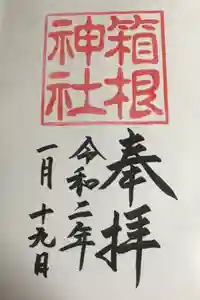 箱根
神社
奉拝
令和二年
一月十九日